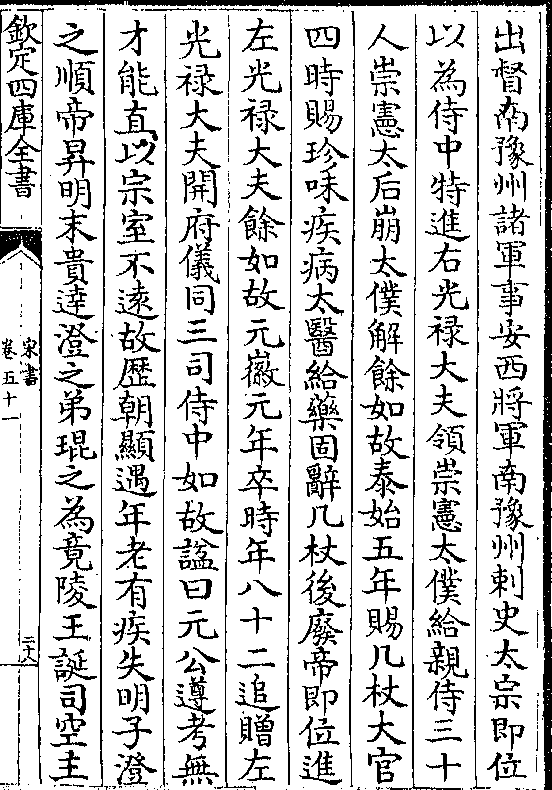 出督南豫州諸軍事安西將軍南豫州刺史太宗即位
以為侍中特進右光禄大夫領崇憲太僕給親侍三十
人崇憲太后崩太僕解餘如故泰始五年賜几杖大官
四時賜珍味疾病太醫給藥固辭几杖後廢帝即位進
左光禄大夫餘如故元徽元年卒時年八十二追贈左
光禄大夫開府儀同三司侍中如故諡曰元公遵考無
才能直以宗室不逺故歴朝顯遇年老有疾失明子澄
之順帝昇明末貴逹澄之弟琨之為竟陵王誕司空主
欽定四庫全書
宋書
卷五十一
二十八